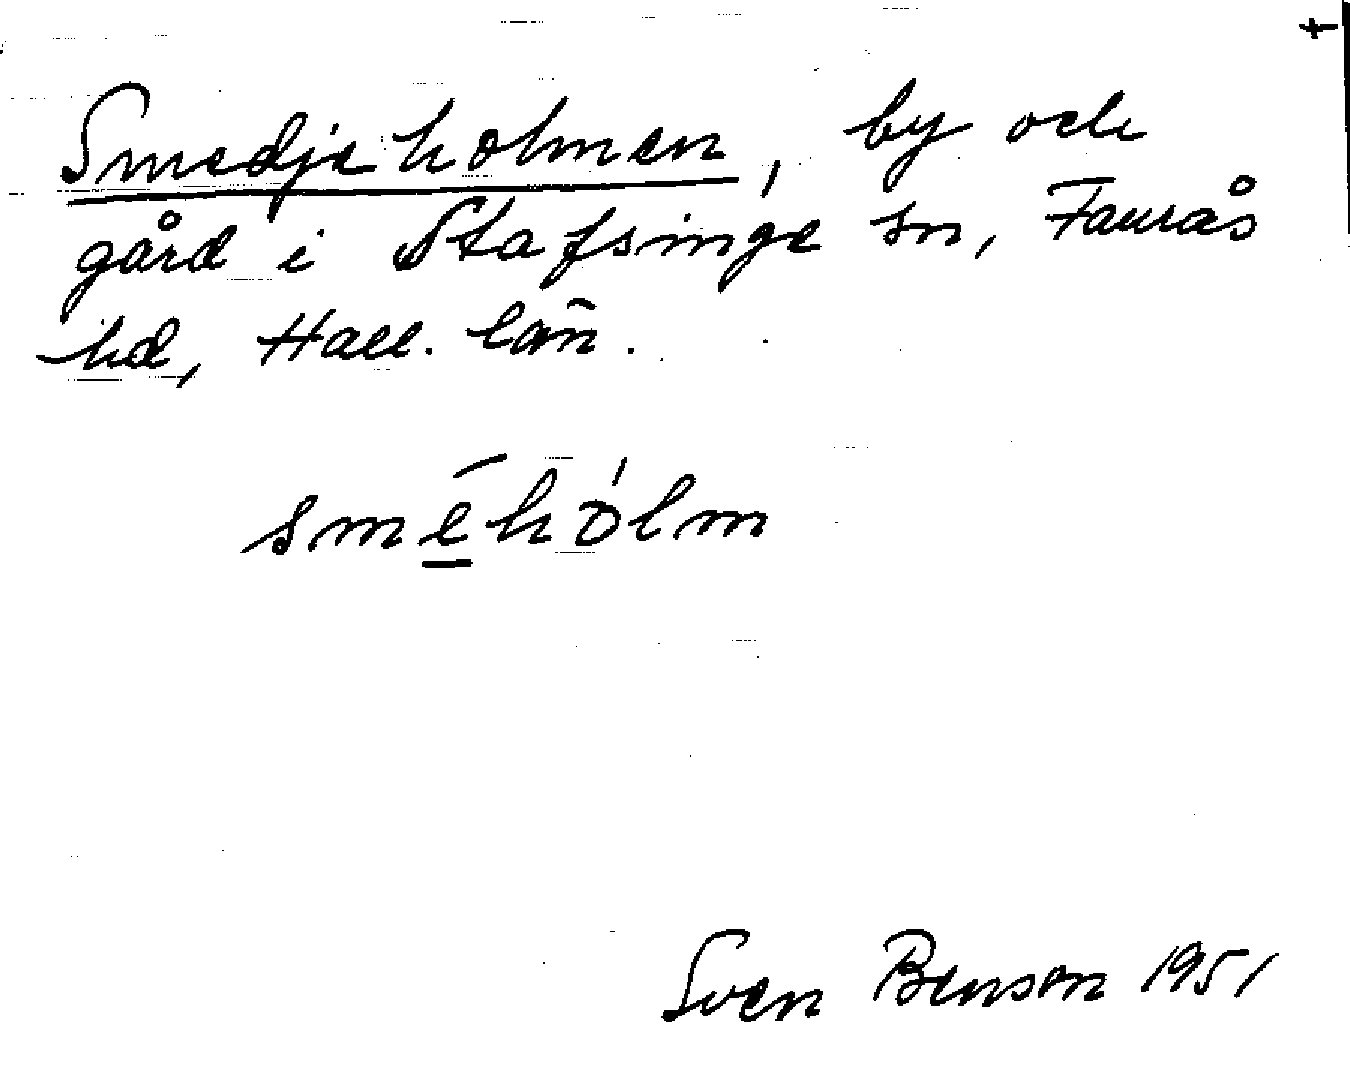 Smedjeholmen, by och
gård i Stafsinge sn, Faurås
hd, Hall. län.
smēhólm
Sven Benson 1951